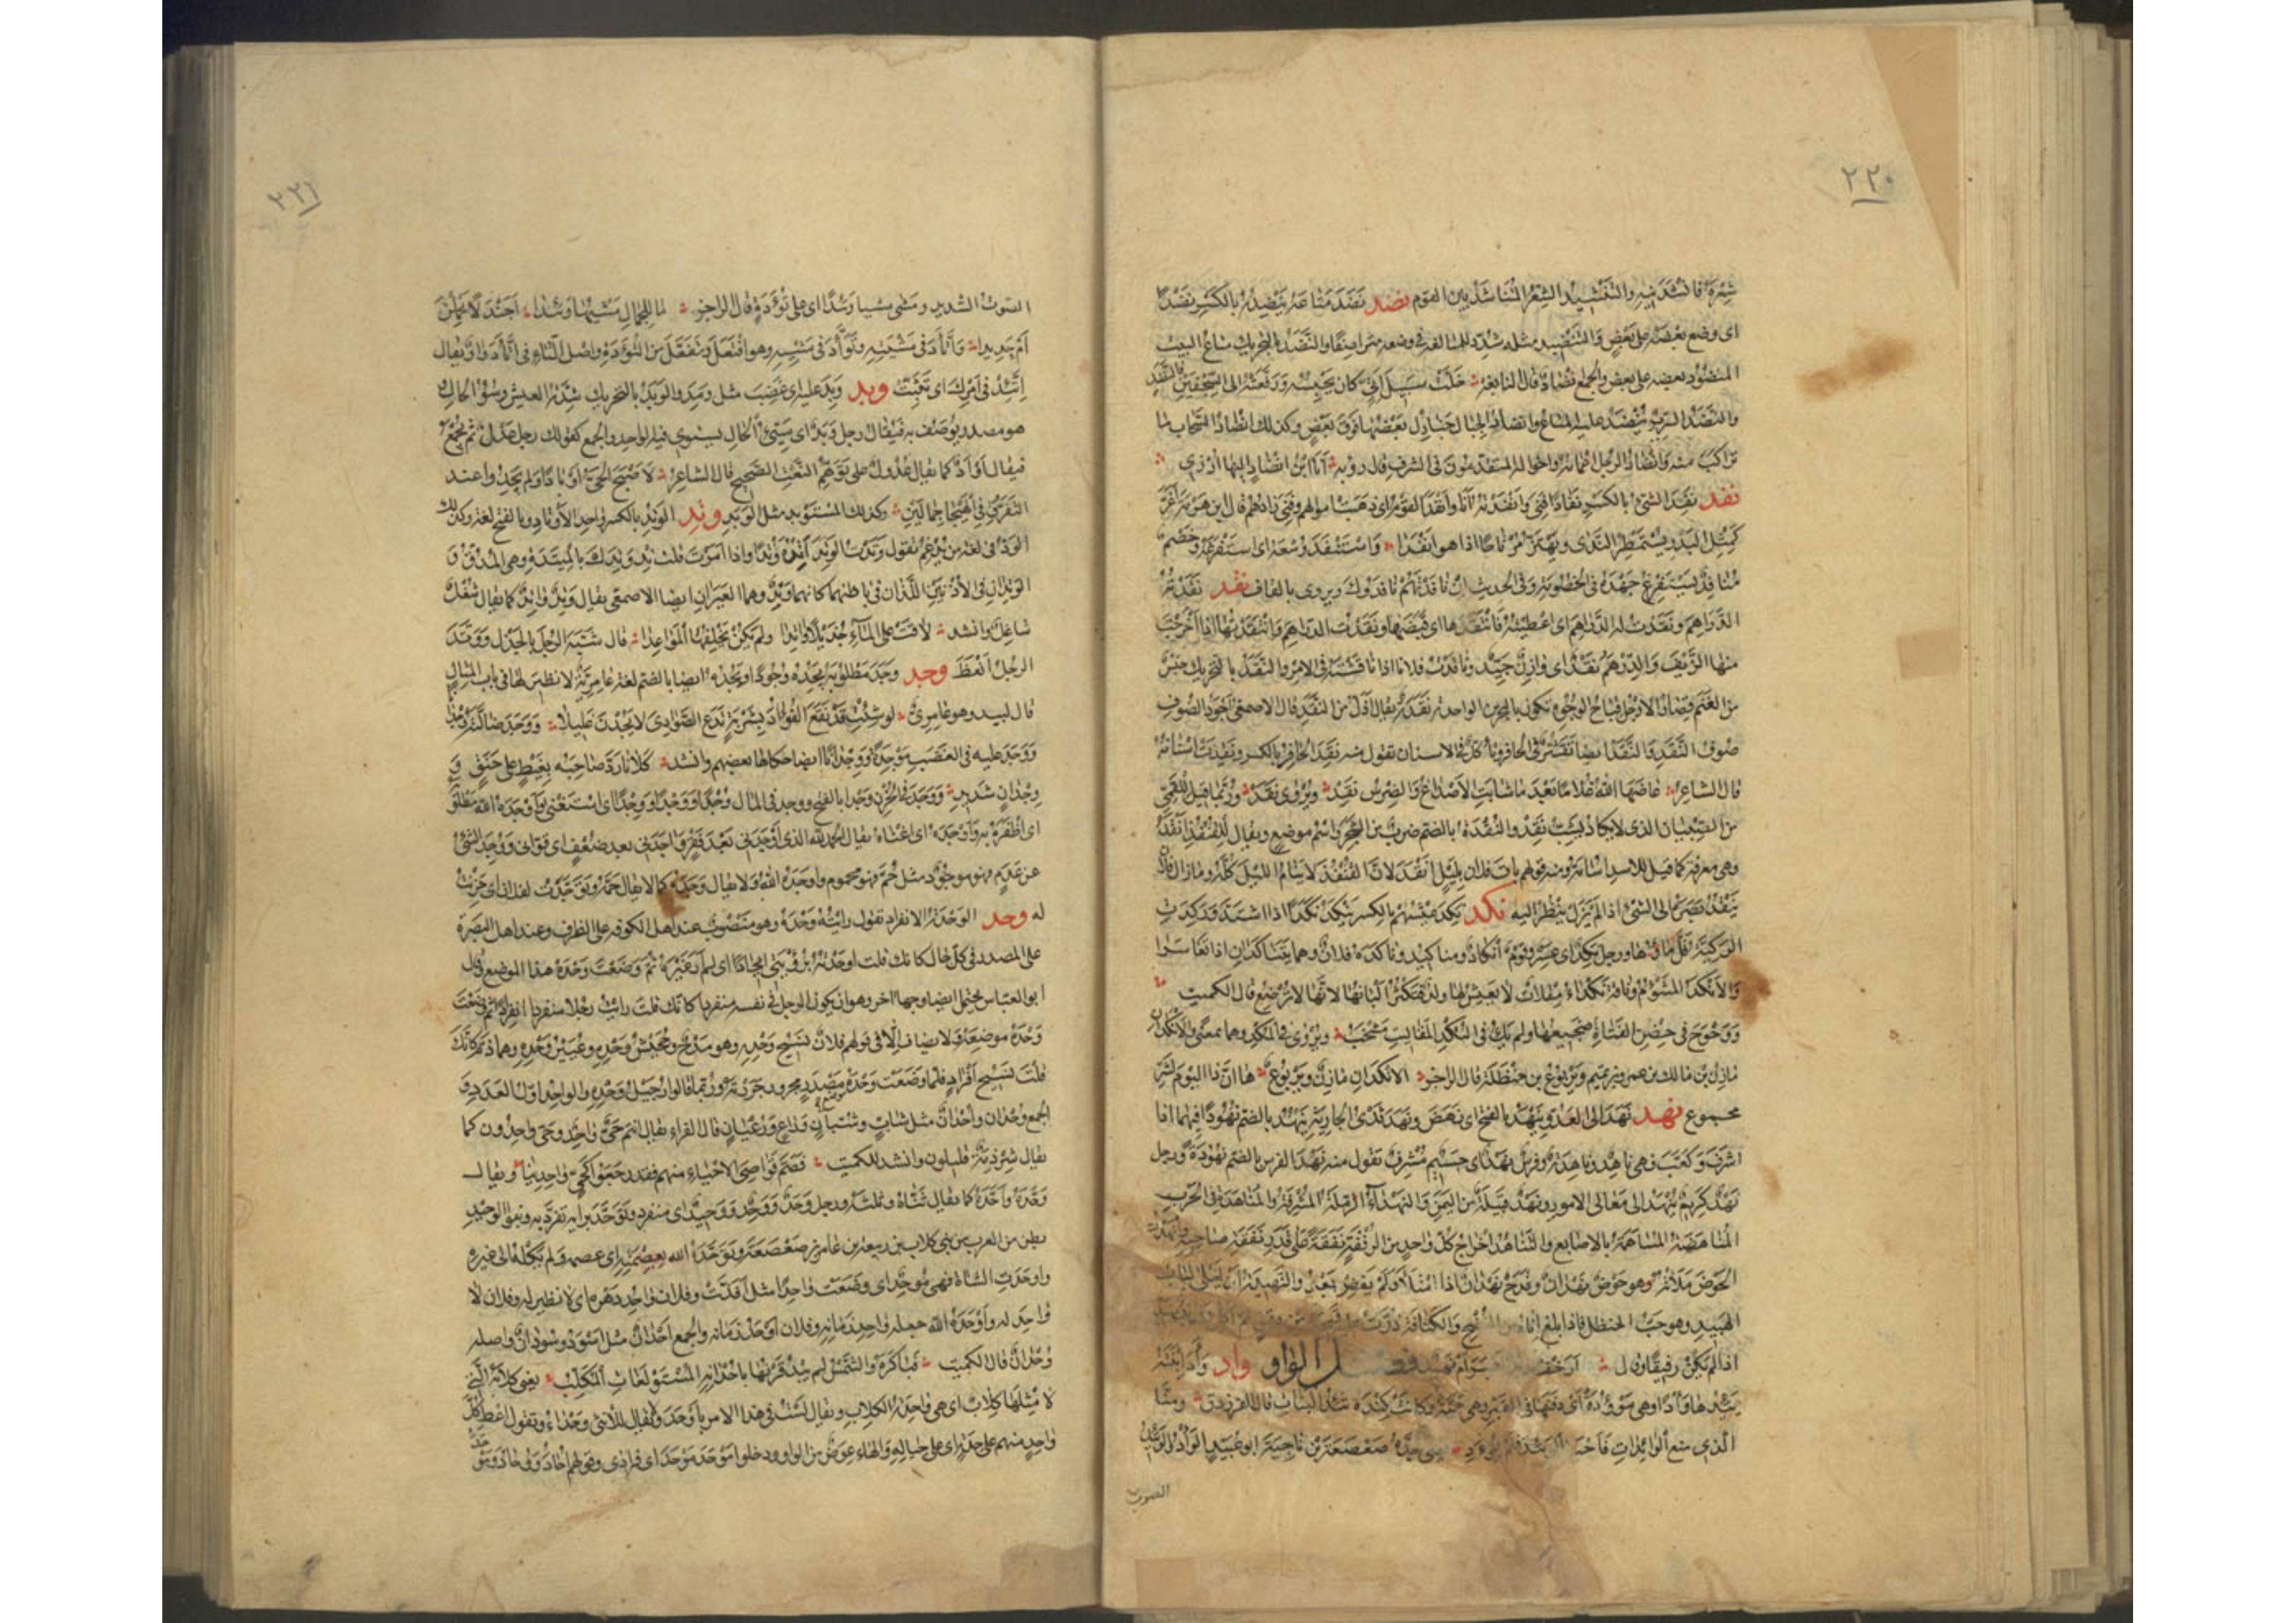 ٢٢٠
شعره فانشدنيه والنشيد الشعر المتناشد بين القوم نضد نضد متاعه ينضده بالكسر نضدا
اى وضع بعضه على بعض والتنضيد مثله شدد للمبالغة فى وضعه متراصفا والنضد بالتحريك متاع البيت
المنضود بعضه على بعض والجمع انضاد قال النابغة خلت سبيل اتى كان يحبسه ورفعته الى السجفين فالنضد
والنضد السرير ينضد عليه المتاع وانضاد الجبال جنادل بعضها فوق بعض وكذلك انضاد السحاب ما
تراكب منه وانضاد الرجل اعمامه واخواله المتقدمون فى الشرف قال روبه انا ابن انضاد اليها ارزى
نفد نفد الشئ بالكسر نفادا فنى وانفدته انا وانفد القوم اى ذهبت اموالهم وفنى زادهم قال ابن هرمة اغر
كمثل البدر يستمطر الندى ويهتز مرتاحا اذا هو انفدا واستنفد وسعه اى استفرغه وخصم
منافد يستفرغ جهده فى الخصومة وفى الحديث ان نافدتهم نافدوك ويروى بالقاف نقد نقدته
الدراهم ونقدت له الدراهم اى اعطيته فانتقدها اى قبضها ونقدت الدراهم وانتقدتها اذا اخرجت
منها الزيف والدرهم نقد اى وازن جيد وناقدت فلانا اذا ناقشته فى الامر والنقد بالتحريك جنس
من الغنم قصار الارجل قباح الوجوه تكون بالبحرين الواحدة نقدة يقال اذل من النقد قال الاصمعى اجود الصوف
صوف النقد والنقد ايضا تقشر فى الحافر وتاكل فى الاسنان تقول منه نقد الحافر بالكسر ونقدت اسنانه
قال الشاعر عاضها الله غلاما بعد ما شابت الاصداغ والضرس نقد ويروى نقد وربما قيل للقمئ
من الصبيان الذى لا يكاد يشب نقد والنقدة بالضم ضرب من الشجر واسم موضع ويقال للقنفذ انقد
وهى معرفة كما قيل للاسد اسامة ومنه قولهم بات فلان بليل انقد لان القنفذ لا ينام الليل كله وما زال فلان
ينقد بصره الى الشئ اذا لم يزل ينظر اليه نكد نكد عيشهم بالكسر ينكد نكدا اذا اشتد ونكدت
الركية قل ماؤها ورجل نكد اى عسر وقوم انكاد ومناكيد وناكده فلان وهما يتناكدان اذا تعاسرا
والانكد المشؤم وناقة نكداء مقلات لا يعيش لها ولد فتكثر البانها لانها لا ترضع قال الكميت
ووحوح فى حضن الفتاة ضجيعها ولم يك فى النكد المقاليت مشخب ويروى فى المكد وهما بمعنى والانكدان
مازن بن مالك بن عمرو بن تميم ويربوع بن حنظلة قال الراجز الانكدان مازن ويربوع ها ان ذا اليوم لشر
مجموع نهد نهد الى العدو ينهد بالفتح اى نهض ونهد ثدى الجارية ينهد بالضم نهودا فيهما اذا
اشرف وكعب فهى ناهد وناهدة وفرس نهد اى جسيم مشرف تقول منه نهد الفرس بالضم نهودة ورجل
نهد كريم ينهد الى معالى الامور ونهد قبيلة من اليمن والنهداء الرملة المشرفة والمناهدة فى الحرب
المناهضة المساهمة بالاصابع والتناهد اخراج كل واحد من الرفقة نفقة على قدر نفقة صاحبه وانهدت
الحوض ملاته وهو حوض نهدان وقدح نهدان اذا امتلا ولم يفض بعد والنهيدة ان يغلى لباب
الهبيد وهو حب الحنظل فاذا بلغ اناه من النضج والكثافة ذر عليه
اذا لم يكن رقيقا فصل الواو واد وأد ابنته
يئدها وأدا وهى موؤدة اى دفنها فى القبر وهى حية وكانت كندة تئد البنات قال الفرزدق ومنا
الذى منع الوائدات فاحيا الوئيد فلم يوءد يعنى جده صعصعة بن ناجية ابو عبيد الوأد والوئيد
الصوت
٢٢١
الصوت الشديد ومشى مشيا وئدا اى على تؤدة قال الراجز ما للجمال مشيها وئدا اجندلا يحملن
ام حديدا واتأد فى مشيته وتوأد فى مشيه وهو افتعل وتفعل من التؤدة واصل التاء فى اتأد واو يقال
اتئد فى امرك اى تثبت وبد وبد عليه اى غضب مثل ومد والوبد بالتحريك شدة العيش وسوء الحال
هو مصدر يوصف به فيقال رجل وبد اى سيئ الحال يستوى فيه الواحد والجمع كقولك رجل عدل ثم يجمع
فيقال اوباد كما يقال عدول على توهم النعت الصحيح قال الشاعر لاصبح الحى اوبادا ولم يجدوا عند
التفرق فى الهيجا جمالين وكذلك المستوبد مثل الوبد وتد الوتد بالكسر واحد الاوتاد وبالفتح لغة وكذلك
الود فى لغة من يدغم تقول وتدت الوتد اتده وتدا واذا امرت قلت تد وتدك بالميتدة وهى المدق و
الوتدان فى الاذنين اللذان فى باطنهما كانهما وتد وهما العيران ايضا الاصمعى يقال وتد واتد كما يقال شغل
شاغل وانشد لاقت على الماء جذيلا واتدا ولم يكن يخلفها المواعدا قال شبه الرجل بالجذل ووتد
الرجل انعظ وجد وجد مطلوبه يجده وجودا ويجده ايضا بالضم لغة عامرية لا نظير لها فى باب المثال
قال لبيد وهو عامرى لو شئت قد نقع الفؤاد بشربة تدع الصوادى لا يجدن غليلا ووجد ضالته وجدانا
ووجد عليه فى الغضب موجدة ووجدانا ايضا حكاها بعضهم وانشد كلانا رد صاحبه بغيظ على حنق و
وجدان شديد ووجد فى الحزن وجدا بالفتح ووجد فى المال وجدا ووجدا ووجدا اى استغنى واوجده الله مطلوبه
اى اظفره به واوجده اى اغناه يقال الحمد لله الذى اوجدنى بعد فقر واجدنى بعد ضعف اى قوانى ووجد الشئ
عن عدم فهو موجود مثل حم فهو محموم واوجده الله ولا يقال وجده كما لا يقال حمه وتوجدت لفلان اى حزنت
له وحد الوحدة الانفراد تقول رايته وحده وهو منصوب عند اهل الكوفة على الظرف وعند اهل البصرة
على المصدر فى كل حال كانك قلت اوحدته برؤيتى ايحادا اى لم ار غيره ثم وضعت وحده هذا الموضع قال
ابو العباس يحتمل ايضا وجها اخر وهو ان يكون الرجل فى نفسه منفردا كانك قلت رايت رجلا منفردا انفرادا ثم وضعت
وحده موضعه ولا يضاف الا فى قولهم فلان نسيج وحده وهو مدح وجحيش وحده وعيير وحده وهما ذم كانك
قلت نسيج افراد فلما وضعت وحده موضع مصدر مجرور جررته وربما قالوا رجيل وحده والواحد اول العدد و
الجمع وحدان واحدان مثل شاب وشبان وراع ورعيان قال الفراء يقال انتم حى واحد وحى واحدون كما
يقال شرذمة قليلون وانشد للكميت فضم قواصى الاحياء منهم فقد رجعوا كحى واحدينا ويقال
وحده واحده كما يقال ثناه وثلثه ورجل وحد ووحد ووحيد اى منفرد وتوحد برايه تفرد به وبنو الوحيد
بطن من العرب من بنى كلاب بن ربيعة بن عامر بن صعصعة وتوحده الله بعصمته اى عصمه ولم يكله الى غيره
واوحدت الشاة فهى موحد اى وضعت واحدا مثل افذت وفلان واحد دهره اى لا نظير له وفلان لا
واحد له واوحده الله جعله واحد زمانه وفلان اوحد زمانه والجمع احدان مثل اسود وسودان واصله
وحدان قال الكميت فباكره والشمس لم يبد قرنها باحدانه المستولغات المكلب يعنى كلابه التى
لا مثلها كلاب اى هى واحدة الكلاب ويقال لست فى هذا الامر باوحد ولا يقال للانثى وحداء وتقول اعط كل
واحد منهم على حدة اى على حياله والهاء عوض من الواو ودخلوا موحد موحد اى فرادى وقولهم احاد ووحاد وموحد